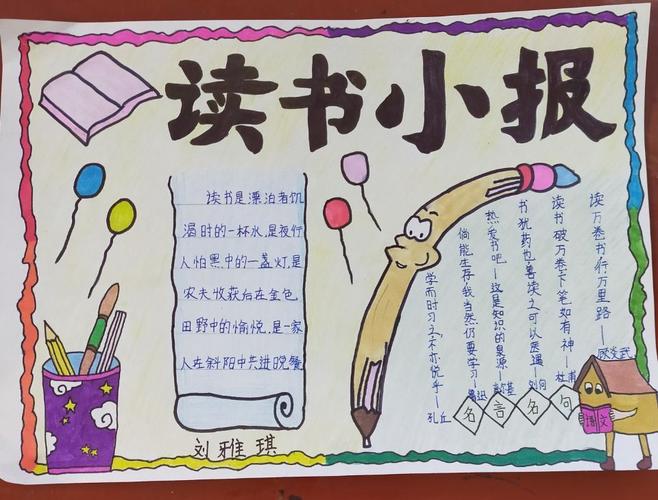 读书小报
读书是漂泊者饥
渴时的一杯水,是夜行
人怕黑中的一盏灯,是
农夫收获后在金色
田野中的愉悦,是一家
人在斜阳中共进晚餐
刘雅琪
读万卷书行万里路——顾炎武
读书破万卷下笔如有神——杜甫
书犹药也善读之可以医遇——刘向
热爱书吧——这是知识的泉源——高尔基
倘能生存,我当然仍要学习——鲁迅
学而时习之不亦悦乎——孔丘
名言名句
语文